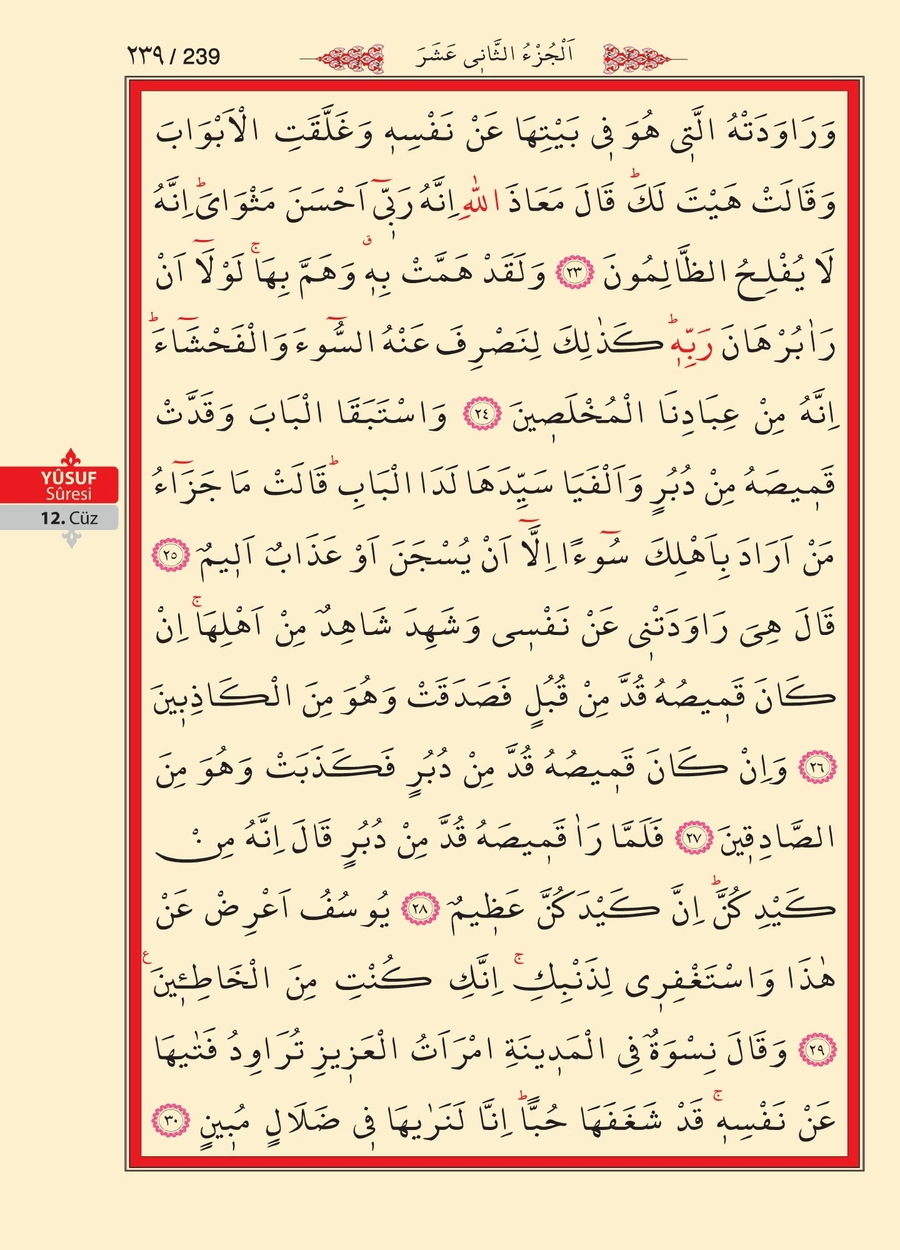 ٢٣٩ / 239
اَلْجُزْءُ الثَّانٖى عَشَرَ
وَرَاوَدَتْهُ الَّتٖى هُوَ فٖى بَيْتِهَا عَنْ نَفْسِهٖ وَغَلَّقَتِ الْاَبْوَابَ
وَقَالَتْ هَيْتَ لَكَؕ قَالَ مَعَاذَ اللّٰهِ اِنَّهُ رَبّٖٓى اَحْسَنَ مَثْوَاىَؕ اِنَّهُ
لَا يُفْلِحُ الظَّالِمُونَ ٢٣ وَلَقَدْ هَمَّتْ بِهٖ وَهَمَّ بِهَاۚ لَوْلَٓا اَنْ
رَاٰ بُرْهَانَ رَبِّهٖؕ كَذٰلِكَ لِنَصْرِفَ عَنْهُ السُّٓوءَ وَالْفَحْشَٓاءَؕ
اِنَّهُ مِنْ عِبَادِنَا الْمُخْلَصٖينَ ٢٤ وَاسْتَبَقَا الْبَابَ وَقَدَّتْ
قَمٖيصَهُ مِنْ دُبُرٍ وَاَلْفَيَا سَيِّدَهَا لَدَا الْبَابِؕ قَالَتْ مَا جَزَٓاءُ
مَنْ اَرَادَ بِاَهْلِكَ سُٓوءًا اِلَّٓا اَنْ يُسْجَنَ اَوْ عَذَابٌ اَلٖيمٌ ٢٥
قَالَ هِىَ رَاوَدَتْنٖى عَنْ نَفْسٖى وَشَهِدَ شَاهِدٌ مِنْ اَهْلِهَاۚ اِنْ
كَانَ قَمٖيصُهُ قُدَّ مِنْ قُبُلٍ فَصَدَقَتْ وَهُوَ مِنَ الْكَاذِبٖينَ
٢٦ وَاِنْ كَانَ قَمٖيصُهُ قُدَّ مِنْ دُبُرٍ فَكَذَبَتْ وَهُوَ مِنَ
الصَّادِقٖينَ ٢٧ فَلَمَّا رَاٰ قَمٖيصَهُ قُدَّ مِنْ دُبُرٍ قَالَ اِنَّهُ مِنْ
كَيْدِكُنَّؕ اِنَّ كَيْدَكُنَّ عَظٖيمٌ ٢٨ يُوسُفُ اَعْرِضْ عَنْ
هٰذَا وَاسْتَغْفِرٖى لِذَنْبِكِۚ اِنَّكِ كُنْتِ مِنَ الْخَاطِـٖٔينَ ع
٢٩ وَقَالَ نِسْوَةٌ فِى الْمَدٖينَةِ امْرَاَتُ الْعَزٖيزِ تُرَاوِدُ فَتٰيهَا
عَنْ نَفْسِهٖۚ قَدْ شَغَفَهَا حُبًّاؕ اِنَّا لَنَرٰيهَا فٖى ضَلَالٍ مُبٖينٍ ٣٠
YÛSUF
Sûresi
12. Cüz